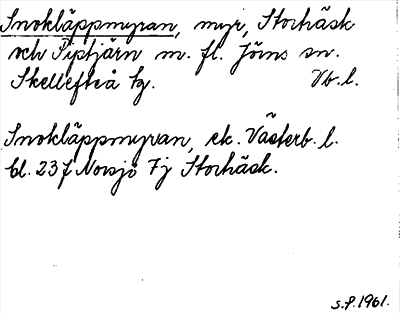 Snokläppmyran, myr, Storhäsk
och Pipstjärn m. fl. Jörns sn.
Skellefteå tg. Vb. l.
Snokläppmyran, ek. Västerb. l.
bl. 23 J Norsjö 7 j Storhäsk.
S.P. 1961.